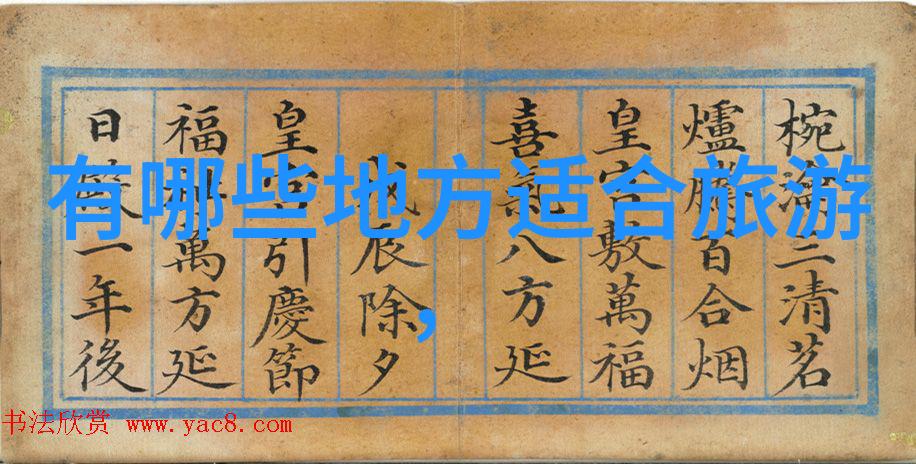 有哪些地方适合旅游
，
椀滿三清茗
爐百合烟
皇宫敷萬福
喜氣八方延
戊辰除夕
皇宫引慶節
福祉萬方延
日一年後
书法欣赏 www.yac8.com